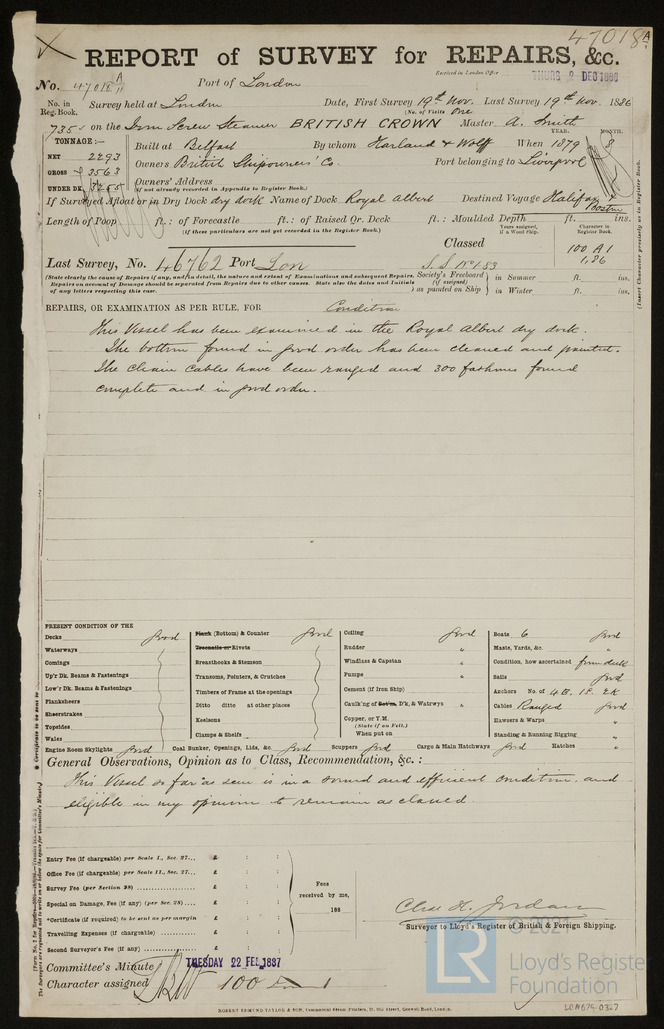 47018 A
REPORT of SURVEY for REPAIRS, &c.
Received in London Office THURS 2 DEC 1886
No. 47018 A/11 Port of London
No. in Reg. Book. Survey held at London Date, First Survey 19th Nov. Last Survey 19th Nov. 1886
(No. of Visits One
735 on the Iron Screw Steamer BRITISH CROWN Master A. Smith
TONNAGE:— YEAR. MONTH.
NET 2293 Built at Belfast By whom Harland & Wolff When 1879 8
GROSS 3563 Owners British Shipowners' Co. Port belonging to Liverpool
UNDER DK. 3255 Owners' Address
(if not already recorded in Appendix to Register Book.)
If Surveyed Afloat or in Dry Dock dry dock Name of Dock Royal Albert Destined Voyage Halifax & Boston
Length of Poop ft.: of Forecastle ft.: of Raised Qr. Deck ft.: Moulded Depth ft. ins.
(if these particulars are not yet recorded in the Register Book.)
Years assigned, if a Wood Ship. Character in Register Book.
Classed 100 A1
1,86
Last Survey, No. 46762 Port Lon S.S. No 1.83
(State clearly the cause of Repairs if any, and, in detail, the nature and extent of Examinations and subsequent Repairs.
Repairs on account of Damage should be separated from Repairs due to other causes. State also the dates and Initials
of any letters respecting this case.
Society's Freeboard (if assigned) as painted on Ship
in Summer ft. ins.
in Winter ft. ins.
(Insert Character precisely as in Register Book.
REPAIRS, OR EXAMINATION AS PER RULE, FOR Condition
This Vessel has been examined in the Royal Albert dry dock.
The bottom found in good order has been cleaned and painted.
The chain cables have been ranged and 300 fathoms found
complete and in good order.
PRESENT CONDITION OF THE
Decks good
Waterways "
Comings "
Up'r Dk. Beams & Fastenings
Low'r Dk. Beams & Fastenings
Planksheers
Sheerstrakes
Topsides
Wales
Engine Room Skylights good
Plank (Bottom) & Counter good
Treenails or Rivets
Breasthooks & Stemson
Transoms, Pointers, & Crutches
Timbers of Frame at the openings
Ditto ditto at other places
Keelsons
Clamps & Shelfs
Coal Bunker, Openings, Lids, &c. good
Ceiling good
Rudder "
Windlass & Capstan "
Pumps "
Cement (if Iron Ship) "
Caulk'ng of Bot'm, D'k, & Watrwys "
Copper, or Y.M.
(State if on Felt.)
When put on
Scuppers good
Cargo & Main Hatchways good
Boats 6 good
Masts, Yards, &c. "
Condition, how ascertained from deck
Sails good
Anchors No. of 4 B. 1 S. 2 K
Cables Ranged good
Hawsers & Warps "
Standing & Running Rigging "
Hatches "
General Observations, Opinion as to Class, Recommendation, &c.:
This Vessel so far as seen is in a sound and efficient condition. and
eligible in my opinion to remain as classed
Entry Fee (if chargeable) per Scale I., Sec. 27... £ : :
Office Fee (if chargeable) per Scale II., Sec. 27... £ : :
Survey Fee (per Section 28) £ : :
Special on Damage, Fee (if any) (per Sec. 28) £ : :
*Certificate (if required) to be sent as per margin £ : :
Travelling Expenses (if chargeable) £ : :
Second Surveyor's Fee (if any) £ : :
Fees received by me,
188
Chas H. Jordan
Surveyor to Lloyd's Register of British & Foreign Shipping.
Committee's Minute TUESDAY 22 FEB. 1887
Character assigned 100 A 1
ROBERT EDMUND TAYLOR & SON, Commercial Steam Printers, 19, Old Street, Goswell Road, London.
LR
© 2021
Lloyd's Register
Foundation